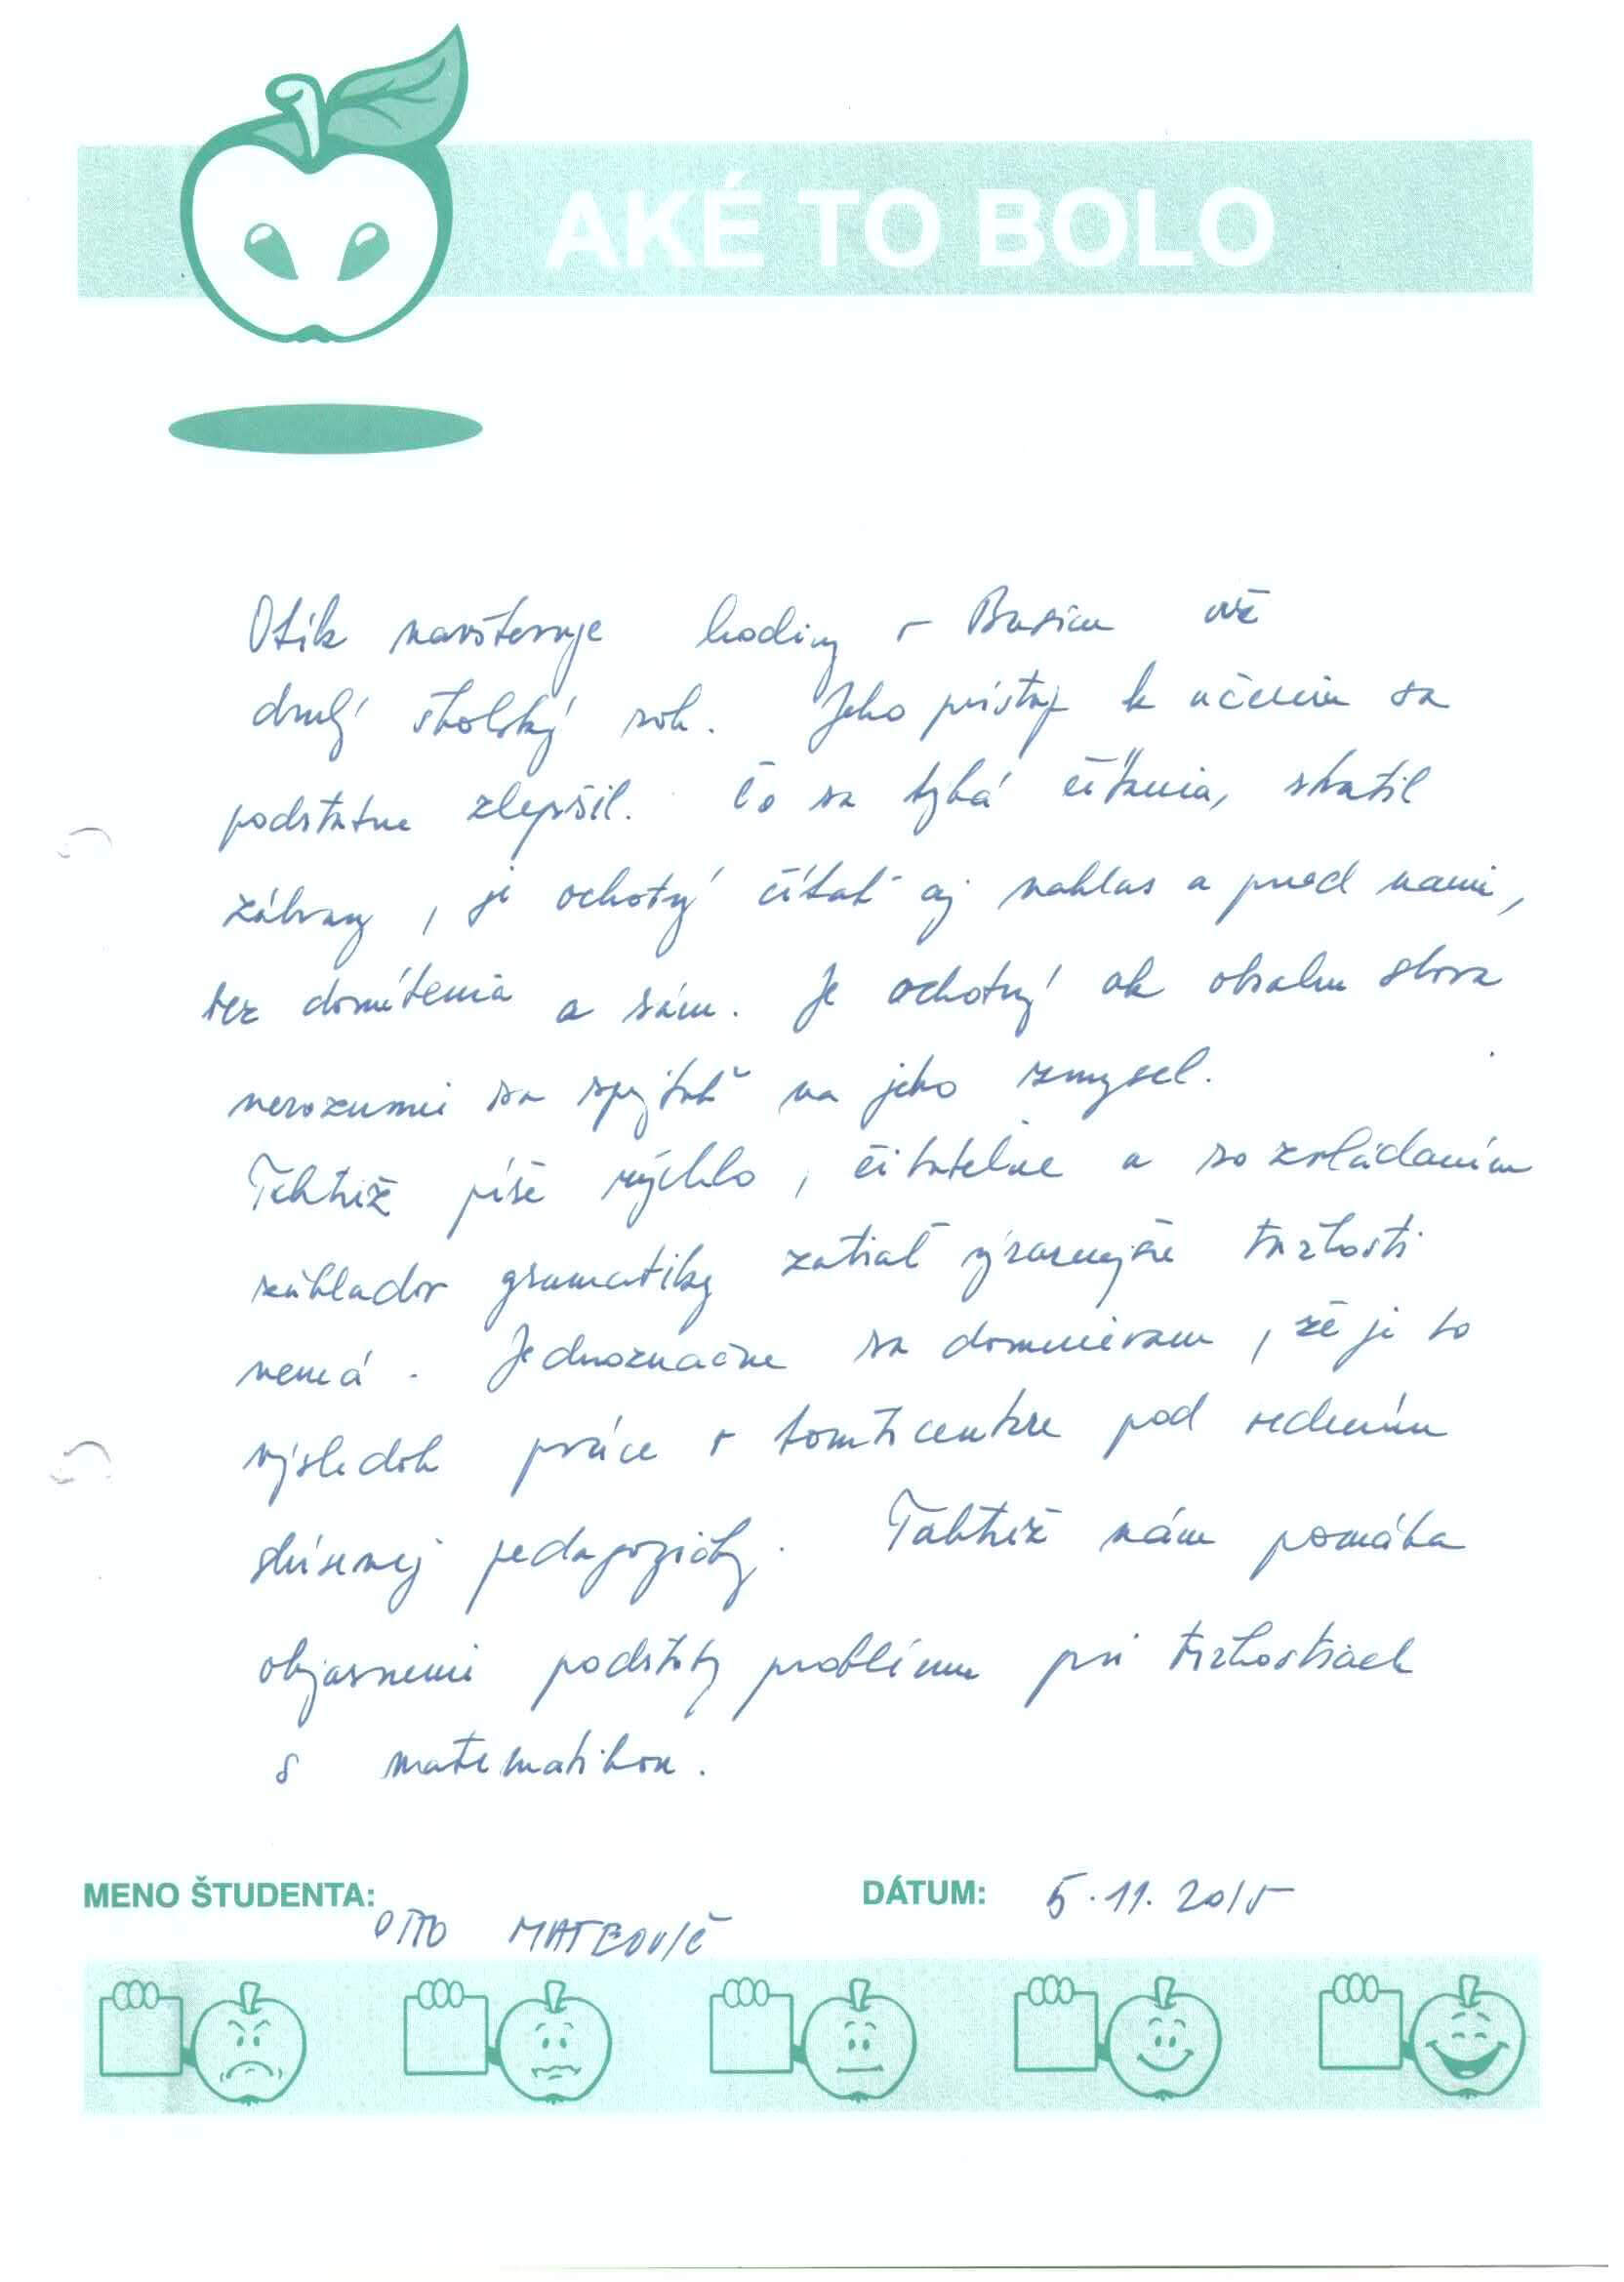 AKÉ TO BOLO
Otík navštevuje hodiny v Basicu už
druhý školský rok. Jeho prístup k učeniu sa
podstatne zlepšil. Čo sa týka čítania, stratil
zábrany, je ochotný čítať aj nahlas a pred nami,
bez donútenia a sám. Je ochotný ak obsahu slova
nerozumie sa spýtať na jeho zmysel.
Taktiež píše rýchlo, čitateľne a so zvládaním
základov gramatiky zatiaľ výraznejšie ťažkosti
nemá. Jednoznačne sa domnievam, že je to
výsledok práce v tomto centre pod vedením
skúsenej pedagogičky. Taktiež nám pomáha
objasnenie podstaty problému pri ťažkostiach
s matematikou.
MENO ŠTUDENTA: OTTO MATEOVIČ
DÁTUM: 5.11.2015